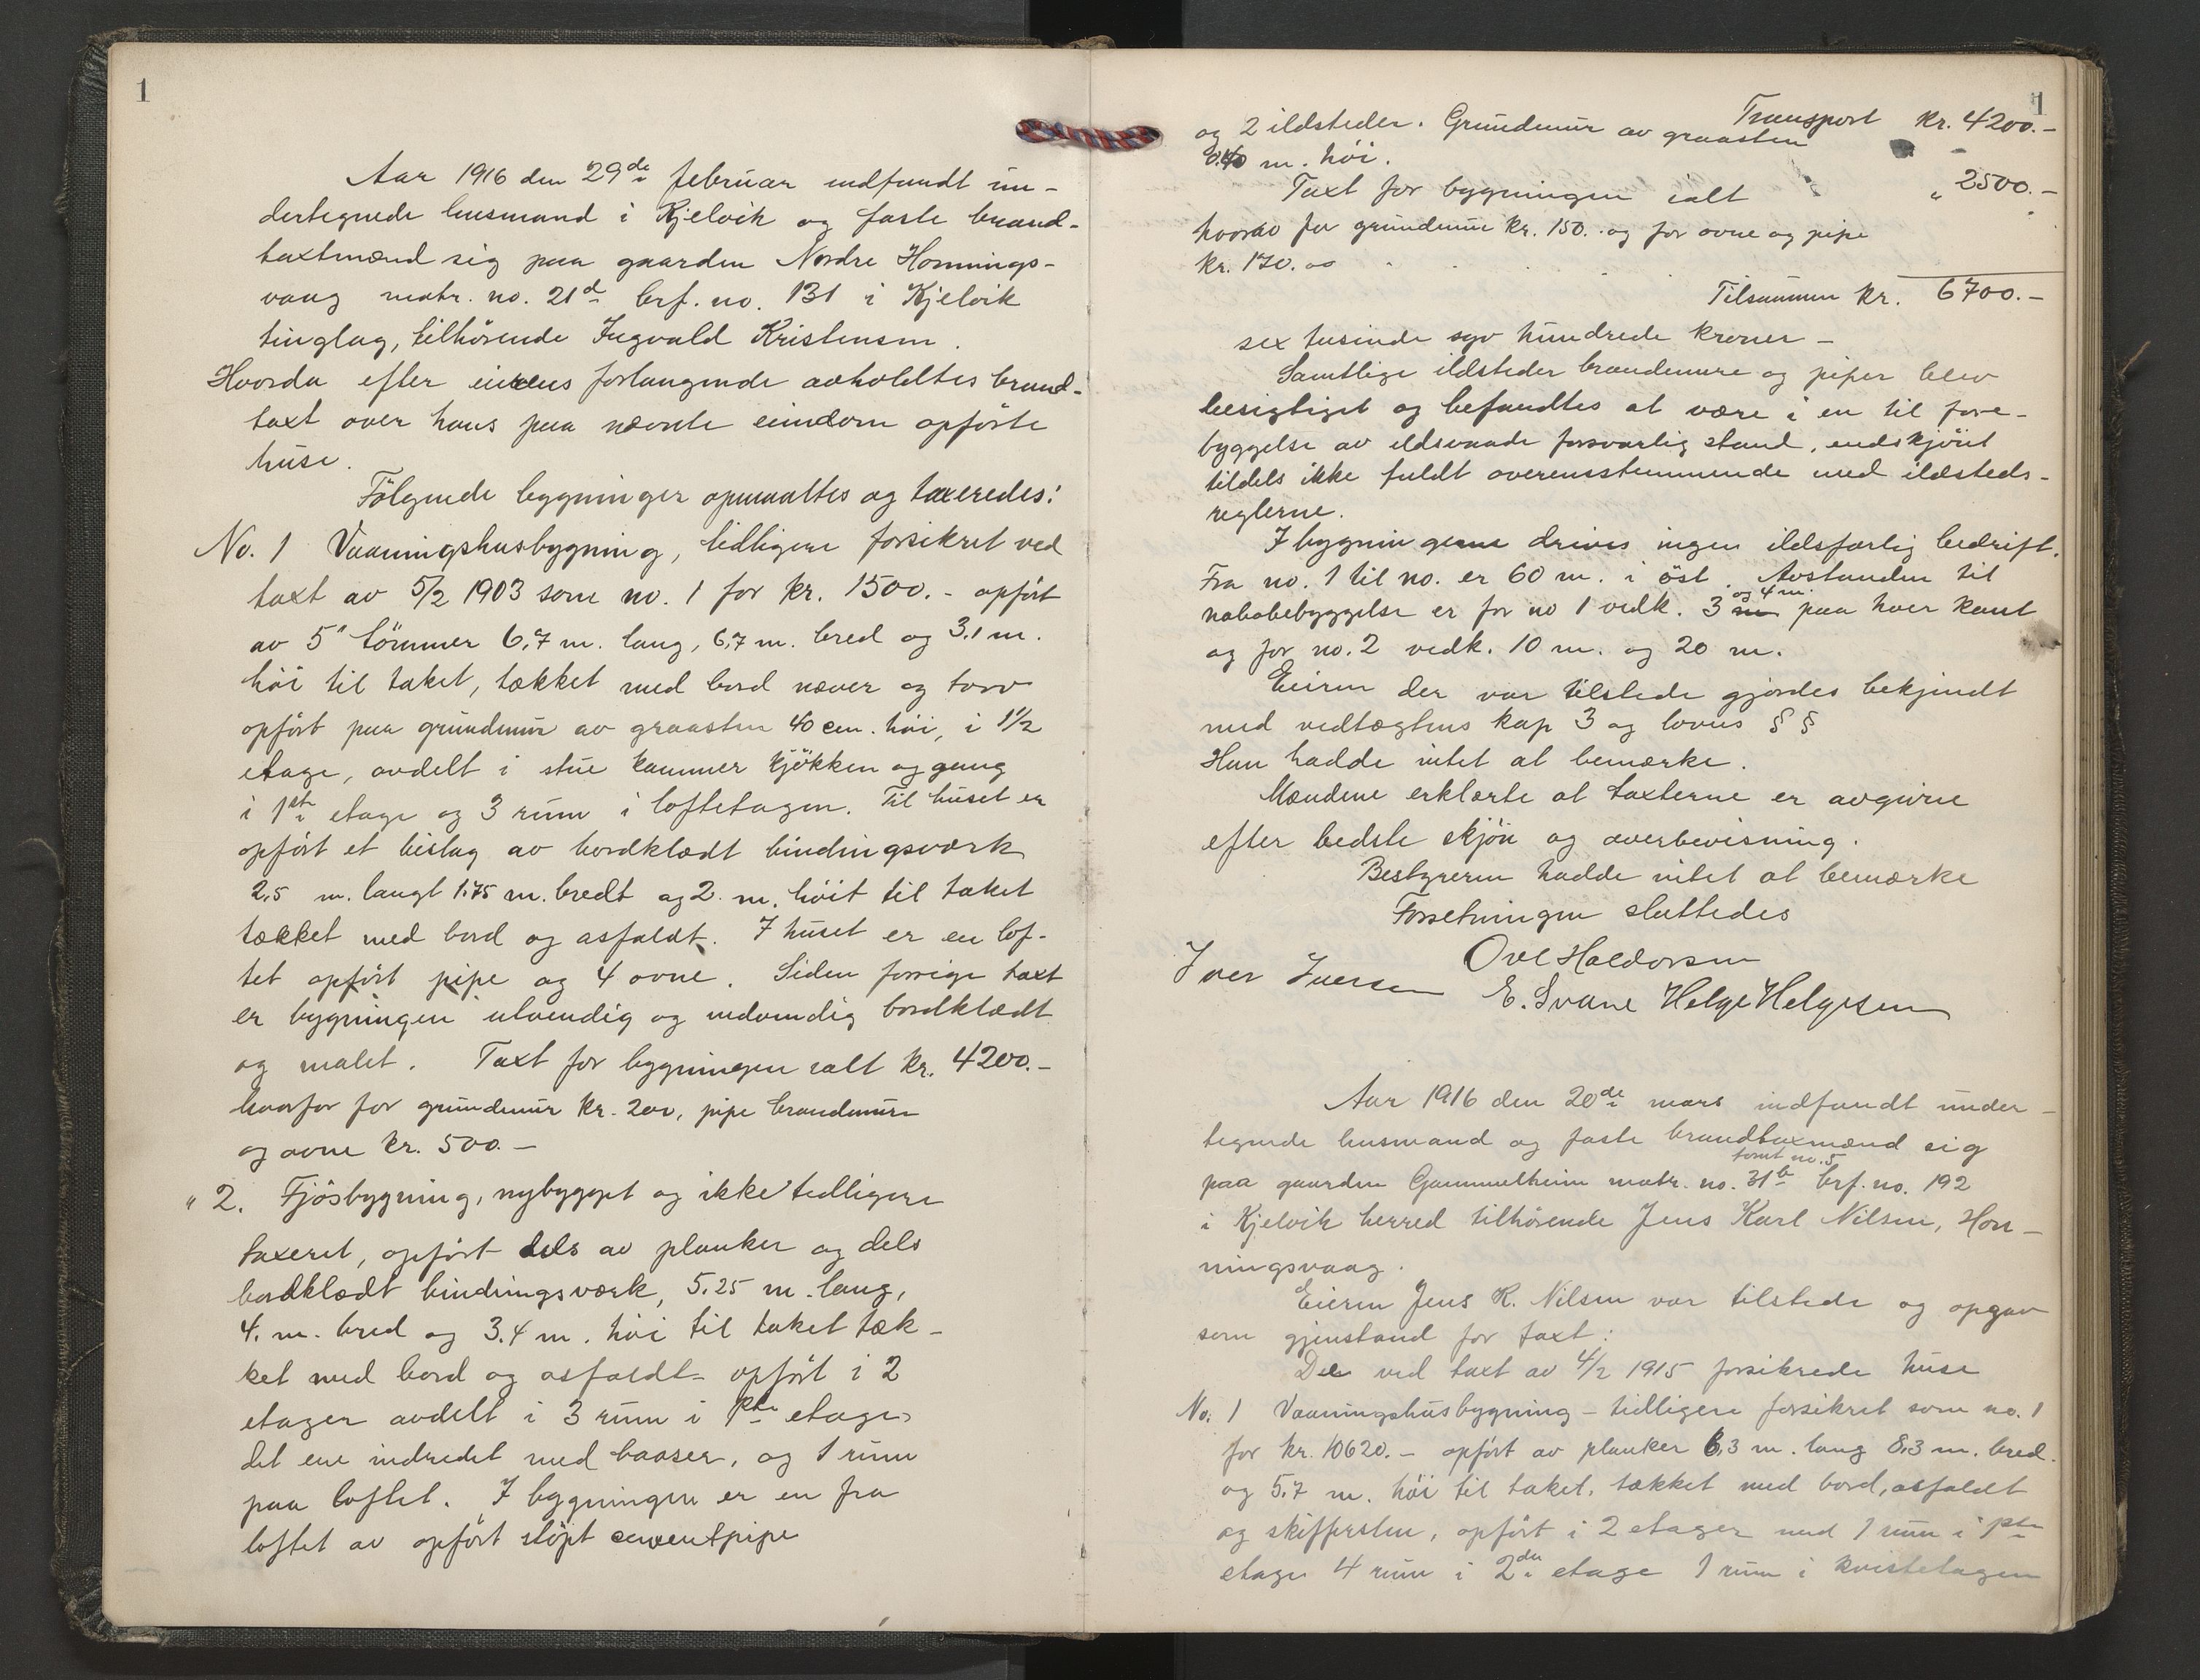 1
Aar 1916 den 29de februar indfandt un-
dertegnede lensmand i Kjelvik og faste brand-
taxtmænd sig paa gaarden Nordre Honnings-
vaag matr. no. 21d brf. no. 131 i Kjelvik
tinglag, tilhörende Ingvald Kristensen.
Hvorda efter eierens forlangende avholdtes brand-
taxt over hans paa nævnte eiendom opförte
huse.
Fölgende bygninger opmaaltes og taxeredes:
No. 1 Vaaningshusbygning, tidligere forsikret ved
taxt av 5/2 1903 som no. 1 for kr. 1500.- opfört
av 5" tömmer 6,7 m. lang, 6,7 m. bred og 3,1 m.
höi til taket, tækket med bord næver og torv
opfört paa grundmur av graasten 40 cm. höi, i 1½
etage, avdelt i stue kammer kjökken og gang
i 1ste etage og 3 rum i loftetagen. Til huset er
opfört et bislag av bordklædt bindingsværk
2,5 m. langt 1.75 m. bredt og 2. m. höit til taket
tækket med bord og asfaldt. I huset er en lof-
tet opfört pipe og 4 ovne. Siden forrige taxt
er bygningen utvendig og indvendig bordklædt
og malet. Taxt for bygningen ialt kr. 4200.-
hvorfor for grundmur kr. 200, pipe brandmure
og ovne kr. 500.-
" 2. Fjösbygning, nybygget og ikke tidligere
taxeret, opfört dels av planker og dels
bordklædt bindingsværk, 5.25 m. lang,
4. m. bred og 3.4 m. höi til taket tæk-
ket med bord og asfaldt opfört i 2
etager avdelt i 3 rum i 1ste etage,
det ene indredet med baaser, og 1 rum
paa loftet. I bygningen er en fra
loftet av opfört stöpt cementpipe
1
Transport kr. 4200.-
og 2 ildsteder. Grundmur av graasten
0.40 m. höi.
Taxt for bygningen ialt " 2500.-
hvorav for grundmur kr. 150. og for ovne og pipe
kr. 170.00
Tilsammen kr. 6700.-
sex tusinde syv hundrede kroner -
Samtlige ildsteder brandmure og piper blev
besigtiget og befandtes at være i en til fore-
byggelse av ildsvaade forsvarlig stand, endskjönt
tildels ikke fuldt overensstemmende med ildsteds-
reglerne.
I bygningerne drives ingen ildsfarlig bedrift.
Fra no. 1 til no. er 60 m. i öst. Avstanden til
og 4 m.
nabobebyggelse er for no 1 vedk. 3 m paa hver kant
og for no. 2 vedk. 10 m. og 20 m.
Eieren der var tilstede gjordes bekjendt
med vedtægtens kap 3 og lovens § §
Han hadde intet at bemærke.
Mændene erklærte at taxterne er avgivne
efter bedste skjön og overbevisning.
Bestyreren hadde intet at bemærke
Forretningen sluttedes
Ove Haldorsen
Iver Iversen E. Svane Helge Helgesen
Aar 1916 den 20de mars indfandt under-
tegnede lensmand og faste brandtaxmænd sig
tomt no. 5
paa gaarden Gammelheim matr. no. 31b brf. no. 192
i Kjelvik herred tilhörende Jens Karl Nilsen, Hon-
ningsvaag.
Eieren Jens K. Nilsen var tilstede og opgav
som gjenstand for taxt:
De ved taxt av 4/2 1915 forsikrede huse
No. 1 Vaaningshusbygning - tidligere forsikret som no. 1
for kr. 10620.- opfört av planker 6,3 m. lang 8,3 m. bred.
og 5,7 m. höi til taket, tækket med bord, asfaldt
og skiffersten, opfört i 2 etager med 1 rum i 1ste
etage 4 rum i 2den etage 1 rum i kvistetagen